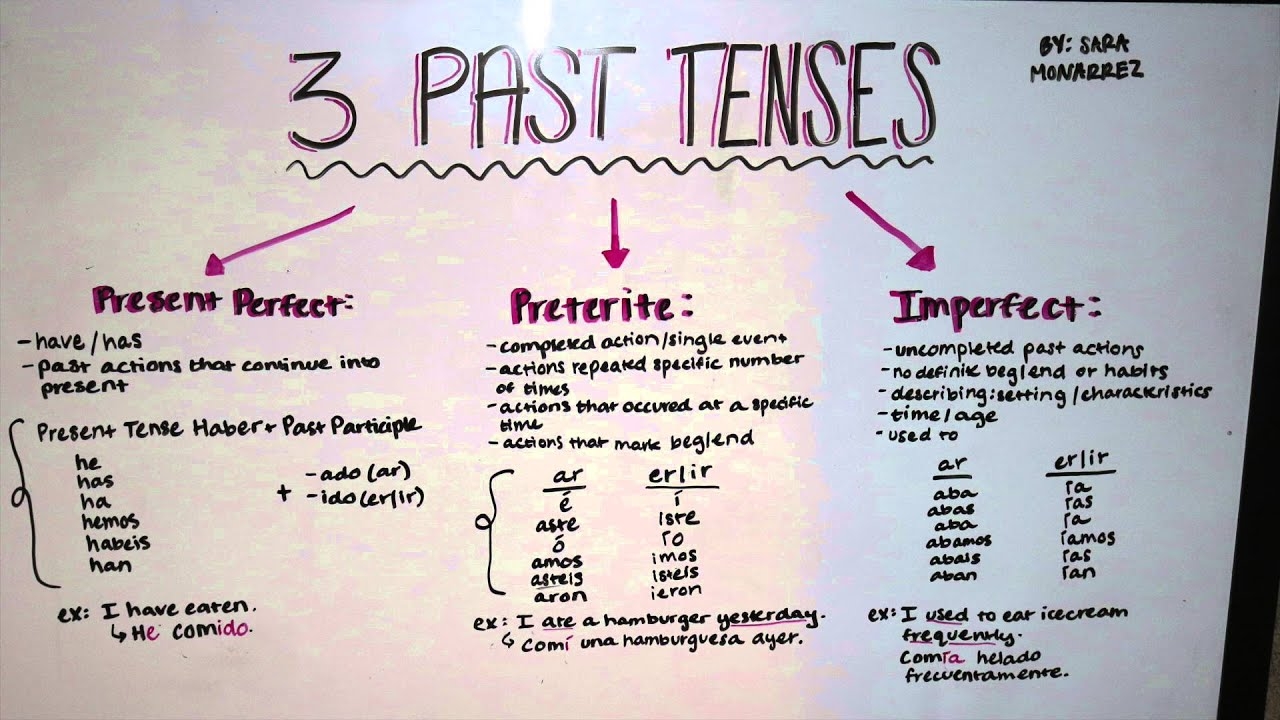 3 PAST TENSES
BY: SARA
MONARREZ
Present Perfect:
- have/has
- past actions that continue into
present
Present Tense Haber + Past Participle
he
has
ha
hemos
habeis
han
+ -ado (ar)
-ido (er/ir)
ex: I have eaten.
↳ He comido.
Preterite:
- completed action/single event
- actions repeated specific number
of times
- actions that occured at a specific
time
- actions that mark beg/end
ar er/ir
é í
aste iste
ó ío
amos imos
asteis isteis
aron ieron
ex: I ate a hamburger yesterday.
↳ Comí una hamburguesa ayer.
Imperfect:
- uncompleted past actions
- no definite beg/end or habits
- describing: setting/characteristics
- time/age
- used to
ar er/ir
aba ía
abas ías
aba ía
abamos íamos
abais ías
aban ían
ex: I used to eat icecream
frequently.
Comía helado
frecuentamente.